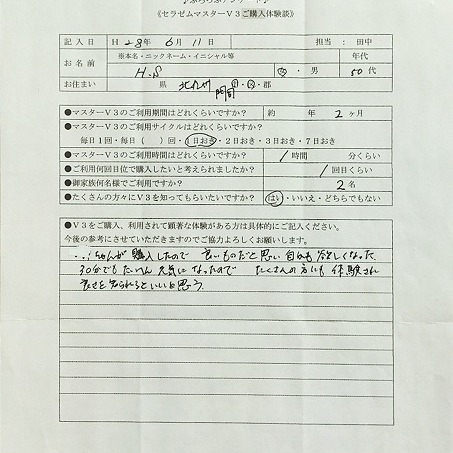 《セラゼムマスターV3ご購入体験談》
記入日 H28年 6月11日 担当：田中
お名前 ※本名・ニックネーム・イニシャル等 年代
H.S 女・男 50代
お住まい 県 北九州 市・区・郡
門司
●マスターV3のご利用期間はどれくらいですか？ 約 年 2ヶ月
●マスターV3のご利用サイクルはどれくらいですか？
毎日1回・毎日（ ）回・1日おき・2日おき・3日おき・7日おき
●マスターV3のご利用時間はどれくらいですか？ 1時間 分くらい
●ご利用何回目位で購入したいと考えられましたか？ 1回目くらい
●御家族何名様でご利用ですか？ 2名
●たくさんの方々にV3を知ってもらいたいですか？ はい・いいえ・どちらでもない
●V3をご購入、利用されて顕著な体験がある方は具体的にご記入ください。
今後の参考にさせていただきますのでご協力よろしくお願いします。
ちゃんが購入したので 良いものだと思い 自分も欲しくなった
30分でも たいへん 元気になったので たくさんの方にも 体験され
良さを知られるといいと思う